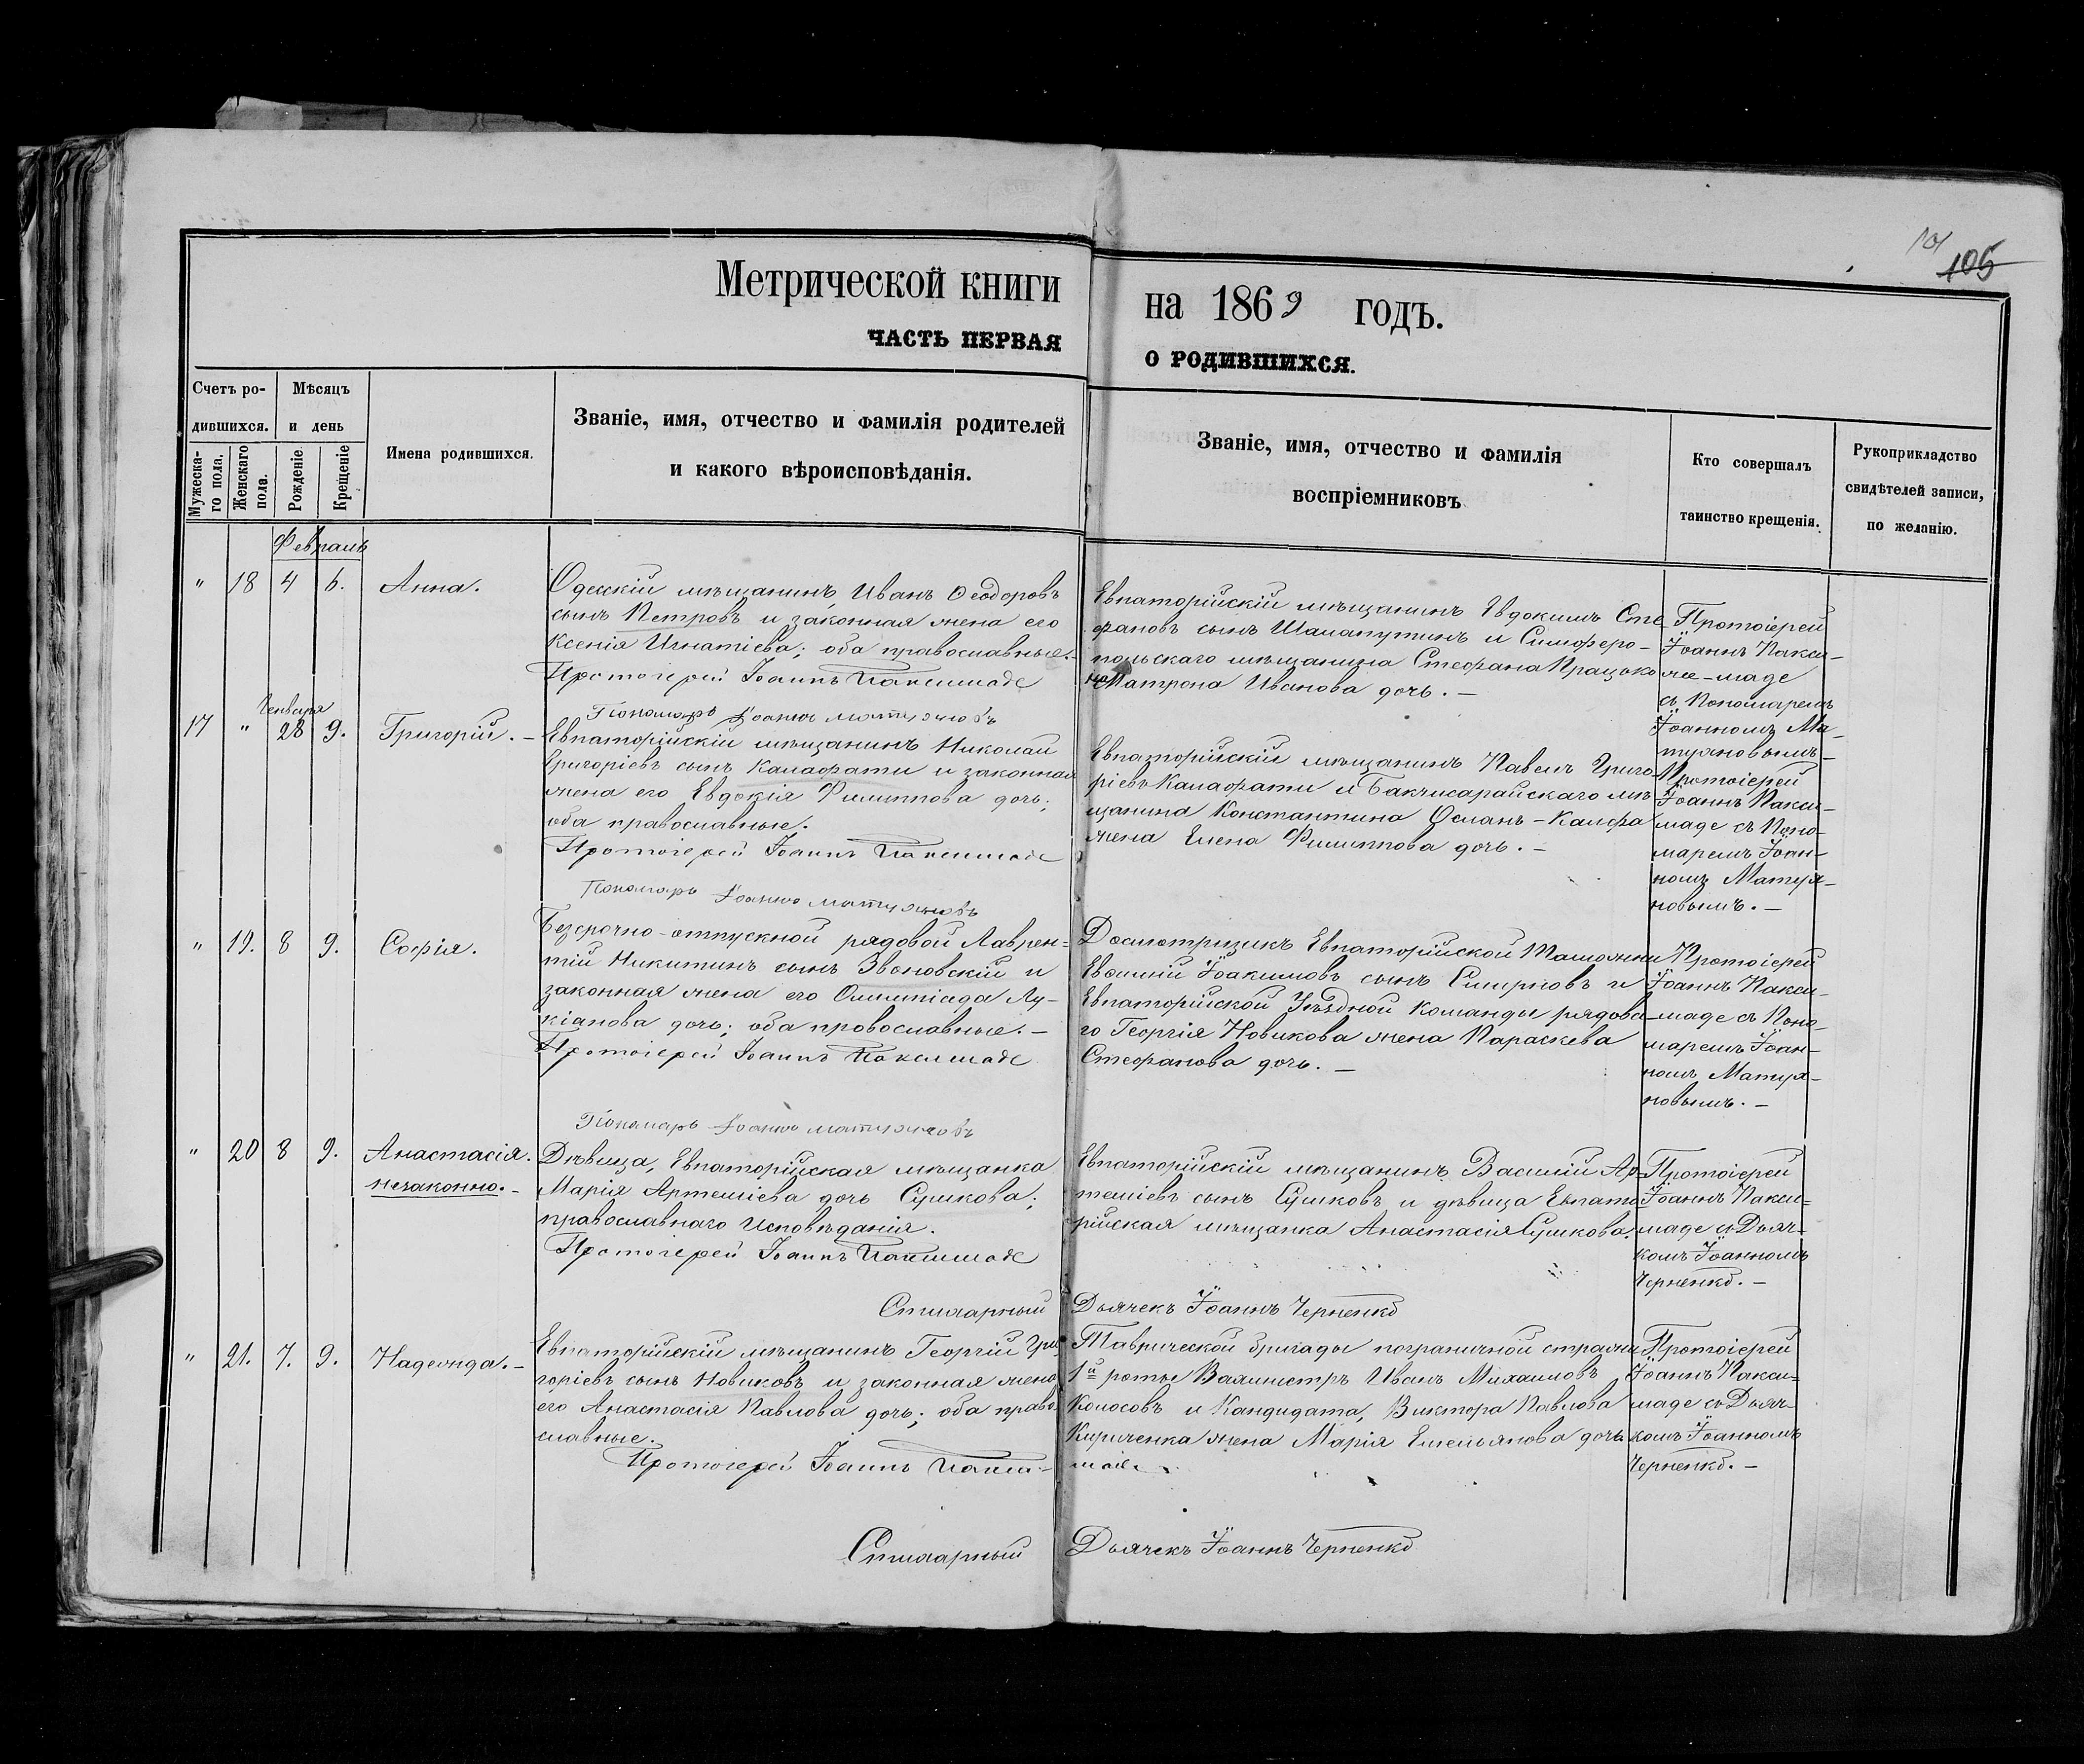 101
105
Метрической книги
на 1869 годъ.
ЧАСТЬ ПЕРВАЯ
О РОДИВШИХСЯ.
Счетъ ро-
дившихся.
Мужеска-
го пола.
Женскаго
пола.
Мѣсяцъ
и день
Рожденіе.
Крещеніе
Имена родившихся.
Званіе, имя, отчество и фамилія родителей
и какого вѣроисповѣданія.
Званіе, имя, отчество и фамилія
воспріемниковъ
Кто совершалъ
таинство крещенія.
Рукоприкладство
свидѣтелей записи,
по желанію.
Февраль
" 18 4 6. Анна.
Одесскій мѣщанинъ Иванъ Ѳеодоровъ
сынъ Петровъ и законная жена его
Ксенія Игнатіева; оба православные.-
Протоіерей Іоаннъ Паксимаде
Пономарь Іоаннъ Матуяновъ
Евпаторійскій мѣщанинъ Евдокимъ Сте-
фановъ сынъ Шалапутинъ и Симферо-
польскаго мѣщанина Стефана
Матрона Иванова дочь. -
Протоіерей
Іоаннъ Пакси-
маде
съ Пономаремъ
Іоанномъ Ма-
туяновымъ
Генваря
17 " 28 9. Григорій. -
Евпаторійскій мѣщанинъ Николай
Григоріевъ сынъ Калафати и законная
жена его Евдокія Филиппова дочь;
оба православные.
Протоіерей Іоаннъ Паксимаде
Пономарь Іоаннъ Матуяновъ
Евпаторійскій мѣщанинъ Павелъ Григо-
ріевъ Калафати и Бакчисарайскаго мѣ-
щанина Константина Османъ-Калфа
жена Елена Филиппова дочь. -
Протоіерей
Іоаннъ Пакси-
маде съ Поно-
маремъ Іоан-
номъ Матуя-
новымъ. -
" 19. 8 9. Софія.
Безсрочно-отпускной рядовой Лаврен-
тій Никитинъ сынъ Звоновскій и
законная жена его Олимпіада Лу-
кіанова дочь; оба провославные. -
Протоіерей Іоаннъ Паксимаде
Пономарь Іоаннъ Матуяновъ
Досмотрщикъ Евпаторійской Таможни
Евѳимій Іоакимовъ сынъ Смирновъ и
Евпаторійской Уѣздной Команды рядова-
го Георгія Новикова жена Параскева
Стефанова дочь. -
Протоіерей
Іоаннъ Пакси-
маде съ Поно-
маремъ Іоан-
номъ Матуя-
новымъ. -
" 20 8 9. Анастасія.
незаконно. -
Дѣвица, Евпаторійская мѣщанка
Марія Артеміева дочь Сушкова;
православнаго Исповѣданія.
Протоіерей Іоаннъ Паксимаде
Евпаторійскій мѣщанинъ Василій Ар-
теміевъ сынъ Сушковъ и дѣвица Евпато-
рійская мѣщанка Анастасія Сушкова.
Протоіерей
Іоаннъ Пакси-
маде съ Дьяч-
комъ Іоанномъ
Черненко. -
Стихарный Дьячекъ Іоаннъ Черненко
" 21. 7. 9. Надежда. -
Евпаторійскій мѣщанинъ Георгій Гри-
горіевъ сынъ Новиковъ и законная жена
его Анастасія Павлова дочь; оба право-
славные.
Протоіерей Іоаннъ Пакси-
маде
Таврической бригады пограничной стражи
1й роты Вахмистръ Иванъ Михаиловъ
Колосовъ и Кандидата, Виктора Павлова
Кириченка жена Марія Емельянова дочь
Протоіерей
Іоаннъ Пакси-
маде съ Дьяч-
комъ Іоанномъ
Черненко. -
Стихарный Дьячекъ Іоаннъ Черненко